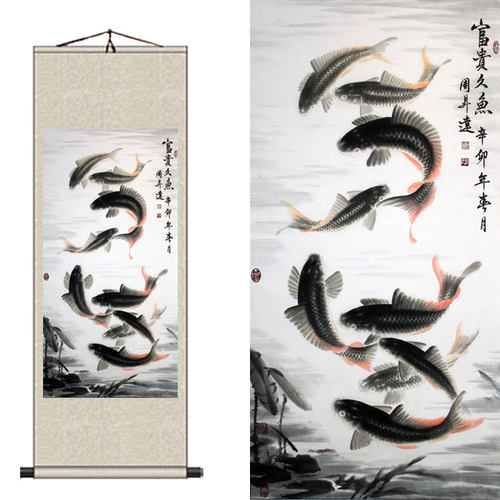 富貴久魚 辛卯年春月
周昇達
富貴久魚 辛卯年春月
周昇達